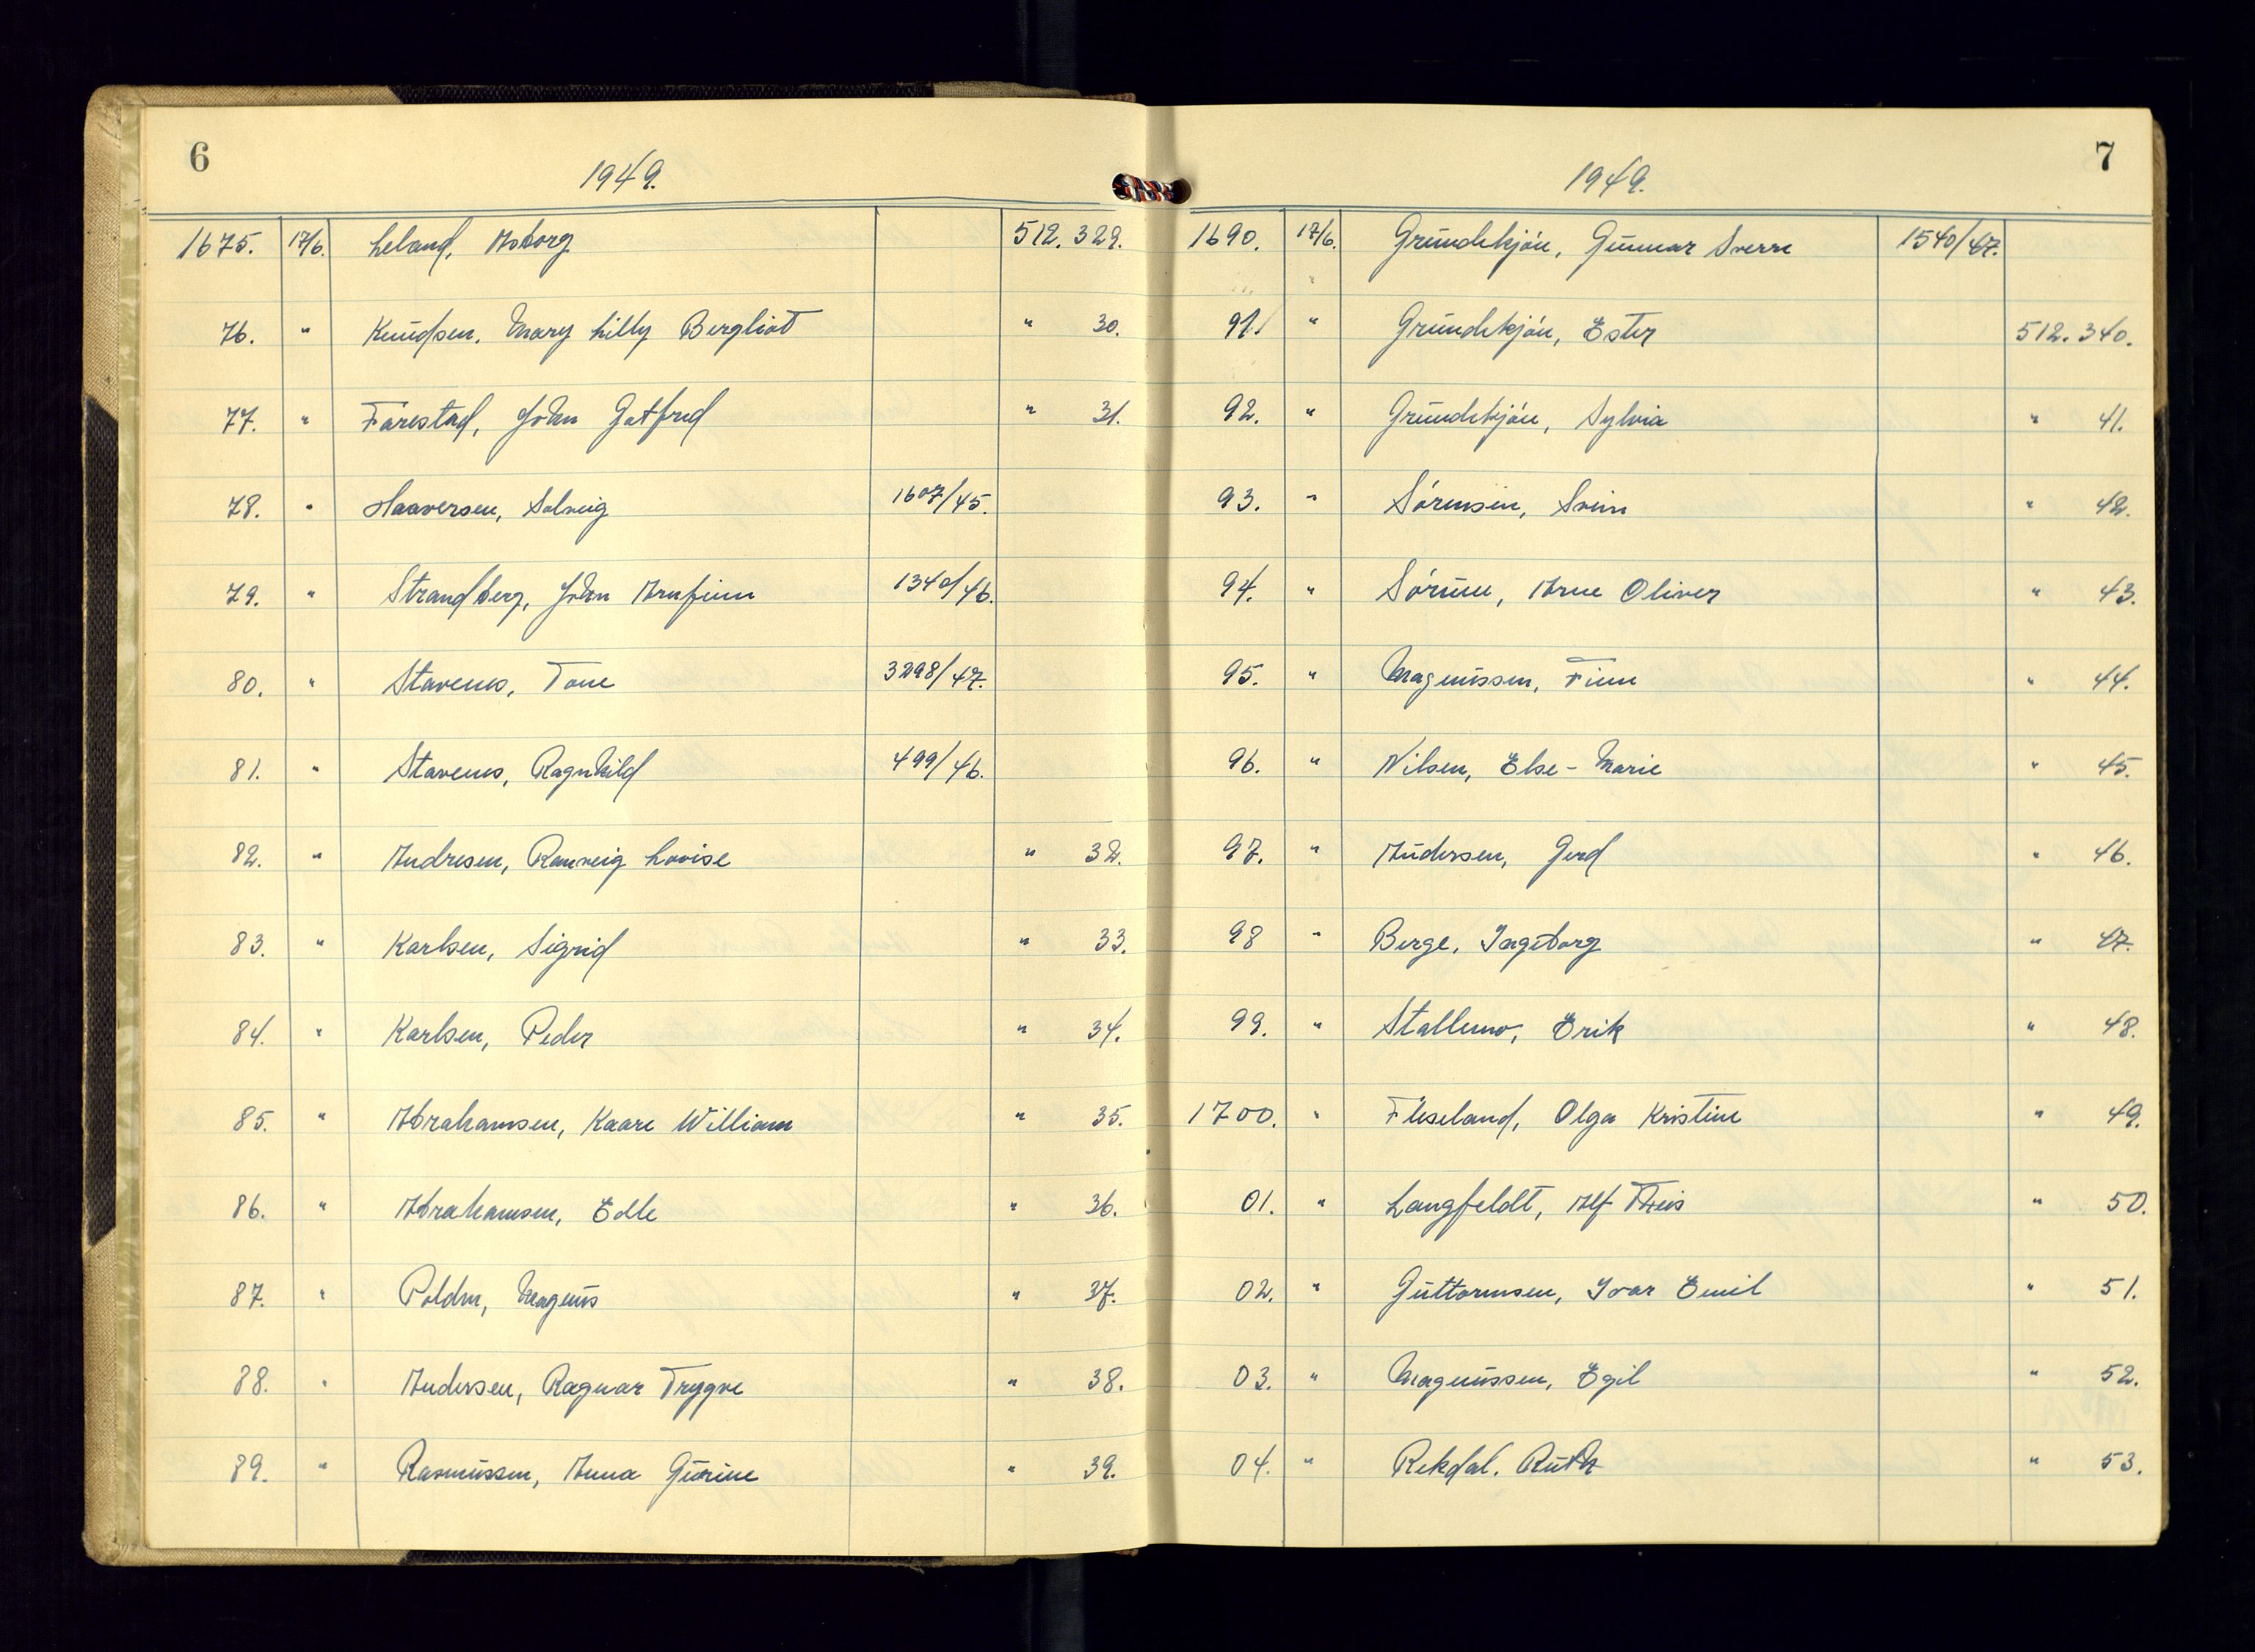 6
1949.
1675. 17/6. Leland, Asborg 512. 329.
76. " Knudsen, Mary Lilly Bergliot " 30.
77. " Farestad, Johan Gotfred " 31.
78. " Haaversen, Solveig 1607/45.
79. " Strandberg, John Arnfinn 1340/46.
80. " Stavenes, Tone 3298/47.
81. " Stavenes, Ragnhild 499/46.
82. " Andresen, Ranveig Lovise " 32.
83. " Karlsen, Sigrid " 33.
84. " Karlsen, Peder " 34.
85. " Abrahamsen, Kaare William " 35.
86. " Abrahamsen, Edle " 36.
87. " Polden, Magnus " 37.
88. " Andersen, Ragnar Trygve " 38.
89. " Rasmussen, Anna Gurine " 39.
7
1949.
1690. 17/6. Grundekjøn, Gunnar Sverre 1540/47.
91. " Grundekjøn, Ester 512. 340.
92. " Grundekjøn, Sylvia " 41.
93. " Sørensen, Svein " 42.
94. " Arne Oliver " 43.
95. " Magnussen, Finn " 44.
96. " Nilsen, Else-Marie " 45.
97. " Andersen, Gerd " 46.
98 " Berge, Ingeborg " 47.
99. " Erik " 48.
1700. " Fuseland, Olga Kristine " 49.
01. " Langfeldt, Alf " 50.
02. " Guttormsen, Ivar Emil " 51.
03. " Magnussen, Egil " 52.
04. " Rekdal. Ruth " 53.